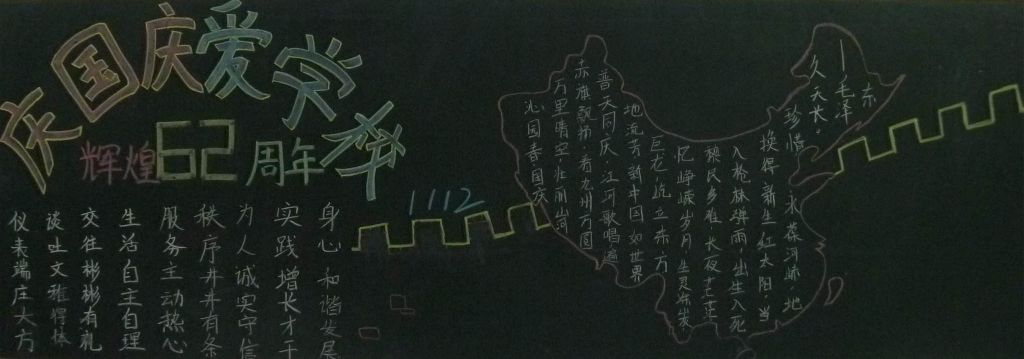 庆国庆爱学校
辉煌62周年
仪表端庄大方
谈吐文雅
交往彬彬有礼
生活自主自理
服务主动热心
秩序井井有条
为人诚实守信
实践增长才干
身心和谐发展
1112
沁园春国庆
万里晴空,壮丽山河
赤旗飘扬,看九州方圆
普天同庆,江河歌唱遍
地流芳新中国如世界
巨龙屹立东方
忆峥嵘岁月生灵涂炭
民乡难,长夜茫茫
入枪林弹雨,出生入死
换得新生红太阳,当
珍惜,永葆河山,地
久天长。
—毛泽东